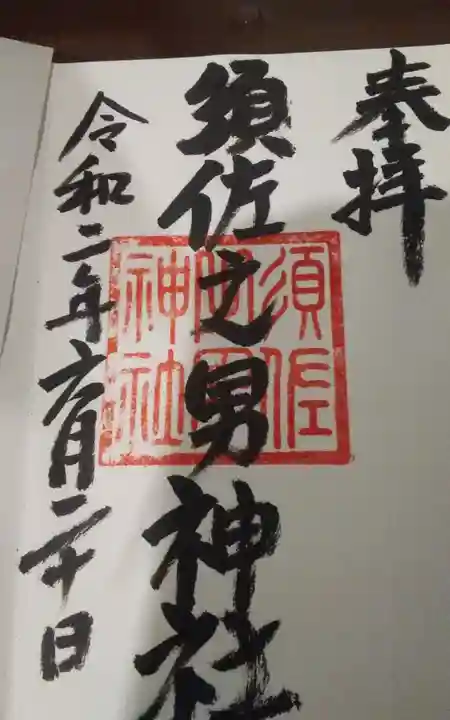 奉拝
須佐之男神社
須佐
神社
令和二年六月二十日